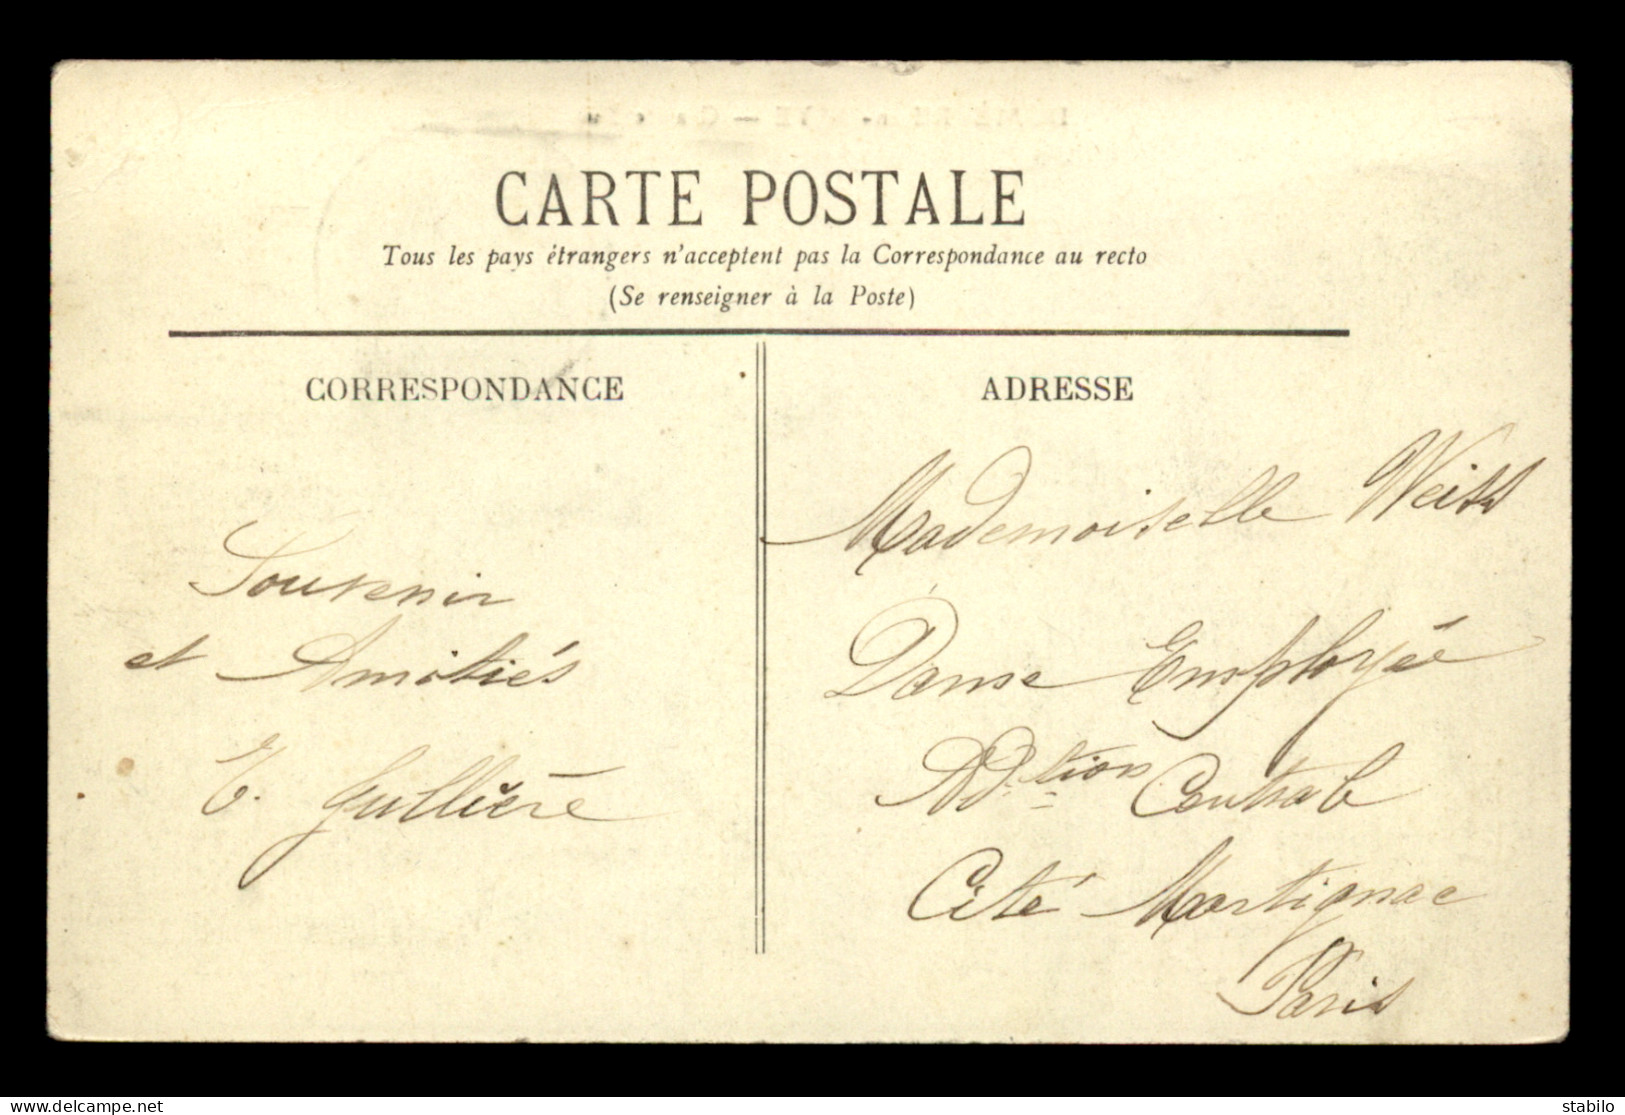 CARTE POSTALE
Tous les pays étrangers n'acceptent pas la Correspondance au recto
(Se renseigner à la Poste)
CORRESPONDANCE
Souvenir
et Amitiés
E. Gullière
ADRESSE
Mademoiselle Weiss
Dame Employée
Ad.tion Centrale
Cité Martignac
Paris
stabilo